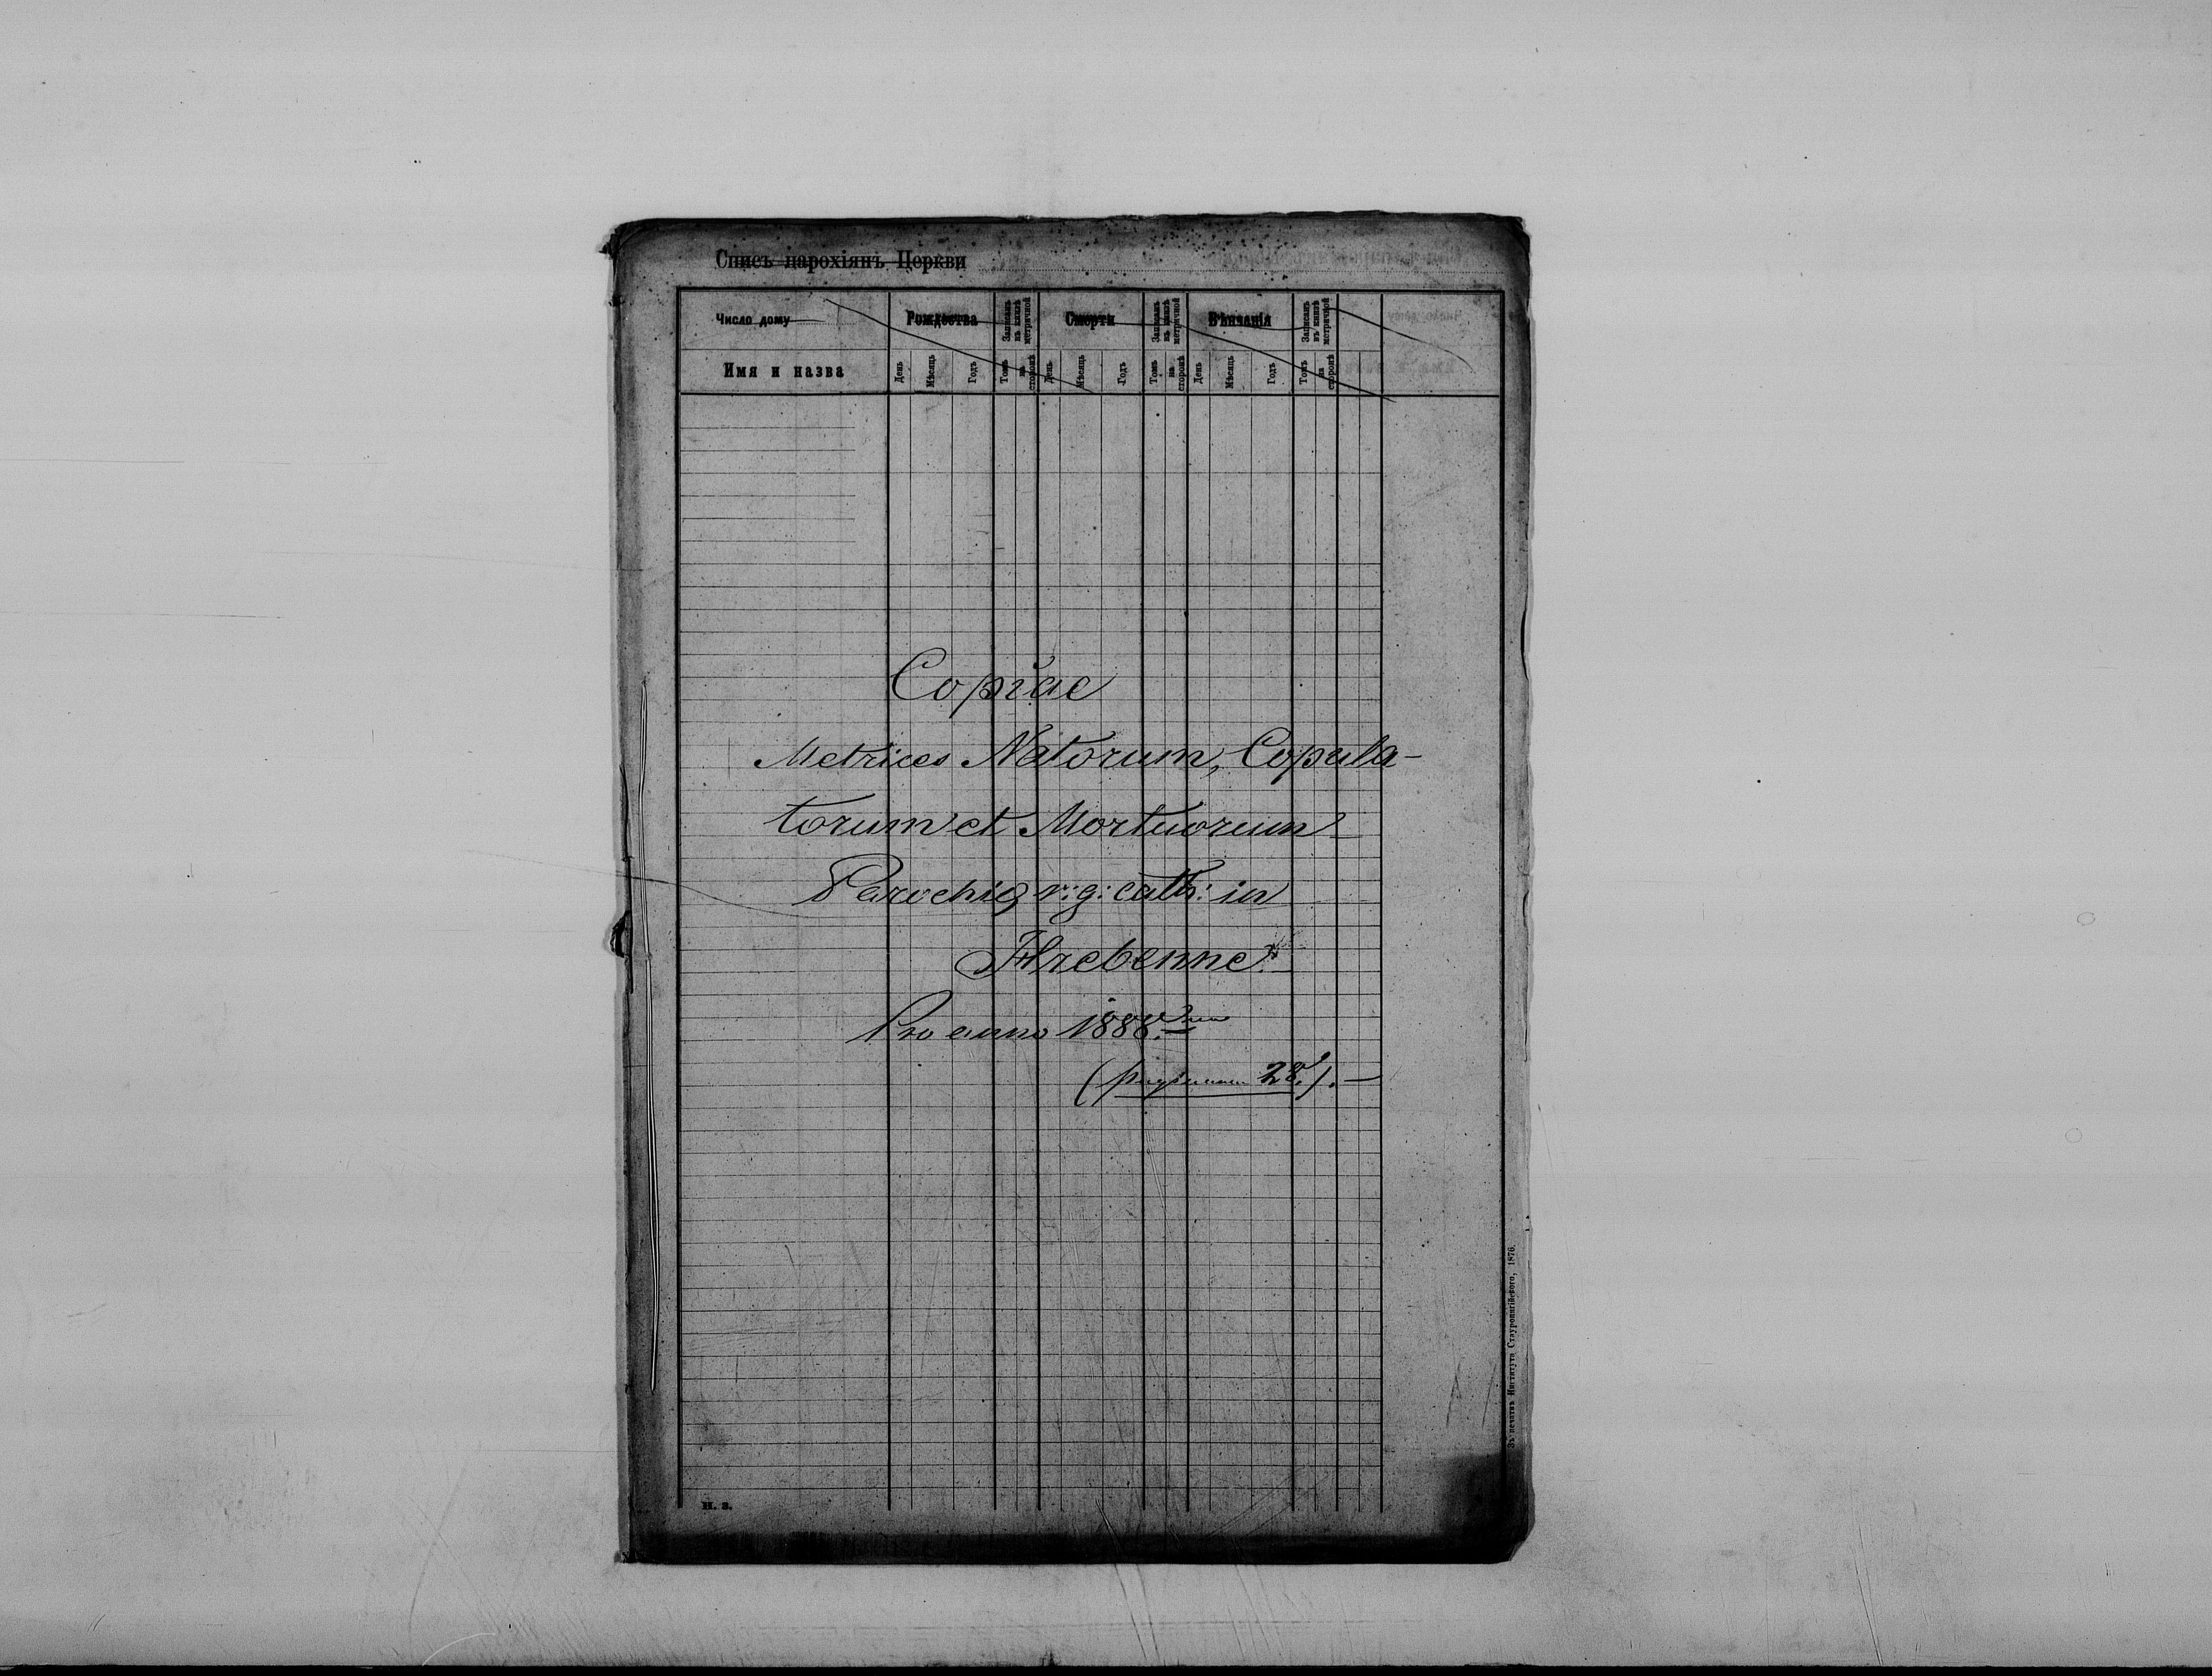 Списъ парохіянъ Церкви
Число дому
Рождества
Записанъ въ книзѣ метричной
Смерти
Записанъ въ книзѣ метричной
Вѣнчанія
Записанъ въ книзѣ метричной
Имя и назва
День
Мѣсяць
Годъ
Томъ
на сторонѣ
День
Мѣсяць
Годъ
Томъ
на сторонѣ
День
Мѣсяць
Годъ
Томъ
на сторонѣ
Copiae
Metrices Natorum, Copula-
torum et Mortuorum
Parochiae r: g: cath: in
Hrebenne
Pro anno 1888.
28.).—
Зъ печатнѣ Института Ставропигійского, 1876.
Н. 3.